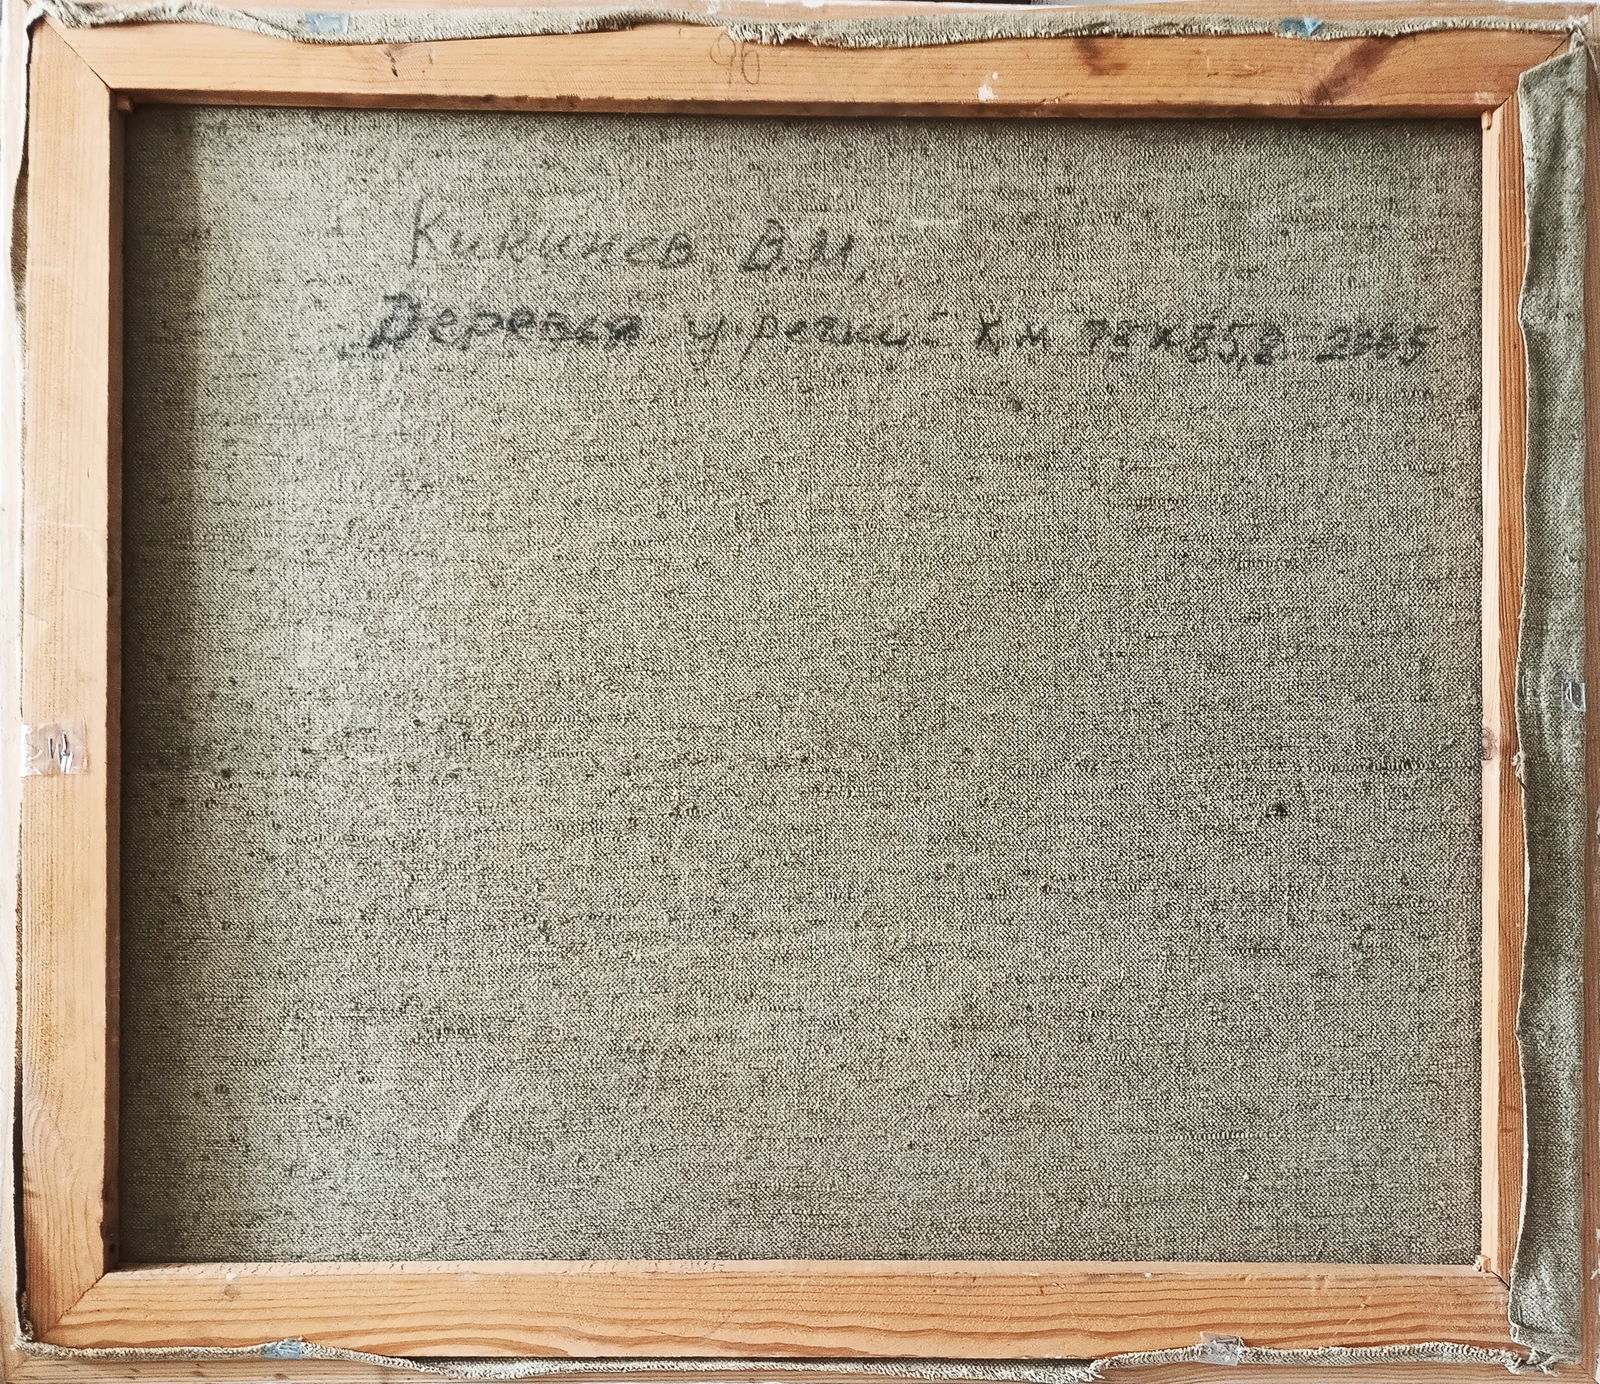 96
Кикинев В.М.
Деревья у речки - х.м 78х85,8 2005